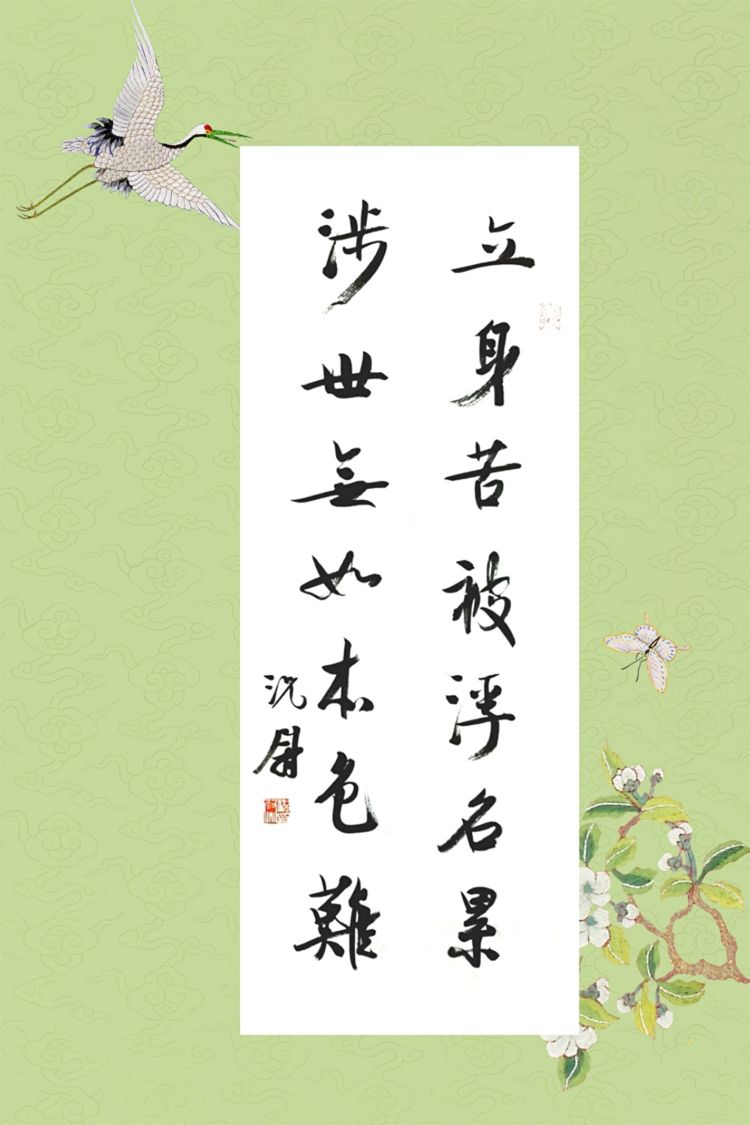 立身苦被浮名累
涉世無如本色難
沈尉